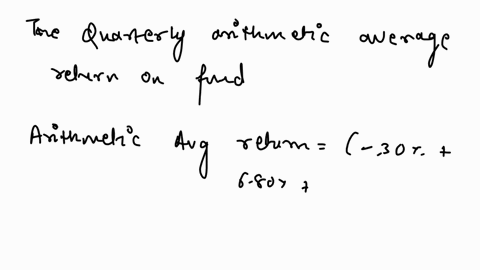 The Quarterly arithmetic average
return on fund
Arithmetic Avg return = (-.30% +
6.80% +